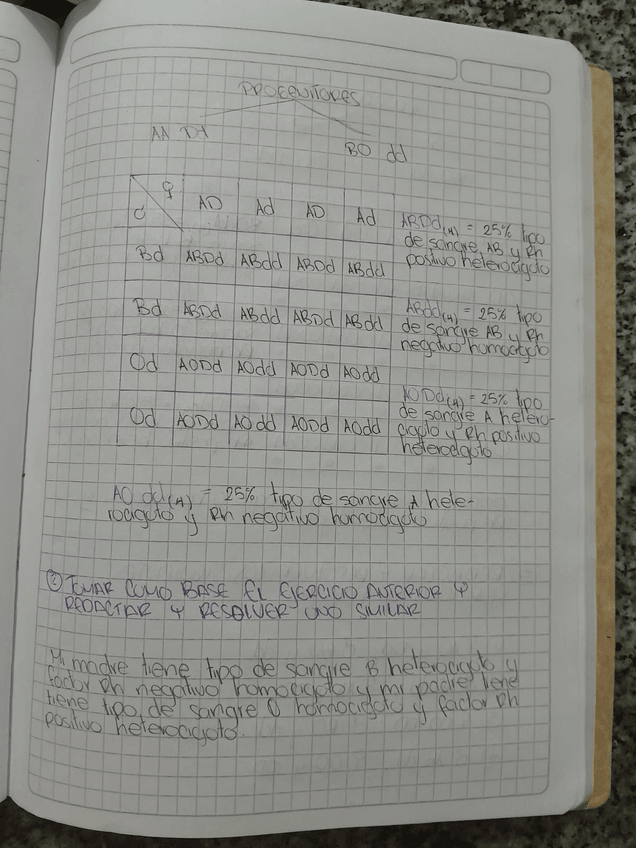 PROGENITORES
AA Dd
BO dd
♀ AD Ad AD Ad
♂
Bd ABDd ABdd ABDd ABdd
Bd ABDd ABdd ABDd ABdd
Od AODd AOdd AODd AOdd
Od AODd AOdd AODd AOdd
ABDd(4) = 25% tipo
de sangre AB y Rh
positivo heterocigoto
ABdd(4) = 25% tipo
de sangre AB y Rh
negativo homocigoto
AODd(4) = 25% tipo
de sangre A hetero-
cigoto y Rh positivo
heterocigoto
AO dd(4) = 25% tipo de sangre A hete-
rocigoto y Rh negativo homocigoto
② TOMAR COMO BASE EL EJERCICIO ANTERIOR Y
REDACTAR Y RESOLVER UNO SIMILAR
Mi madre tiene tipo de sangre B heterocigoto y
factor Rh negativo homocigoto y mi padre tiene
tiene tipo de sangre O homocigoto y factor Rh
positivo heterocigoto